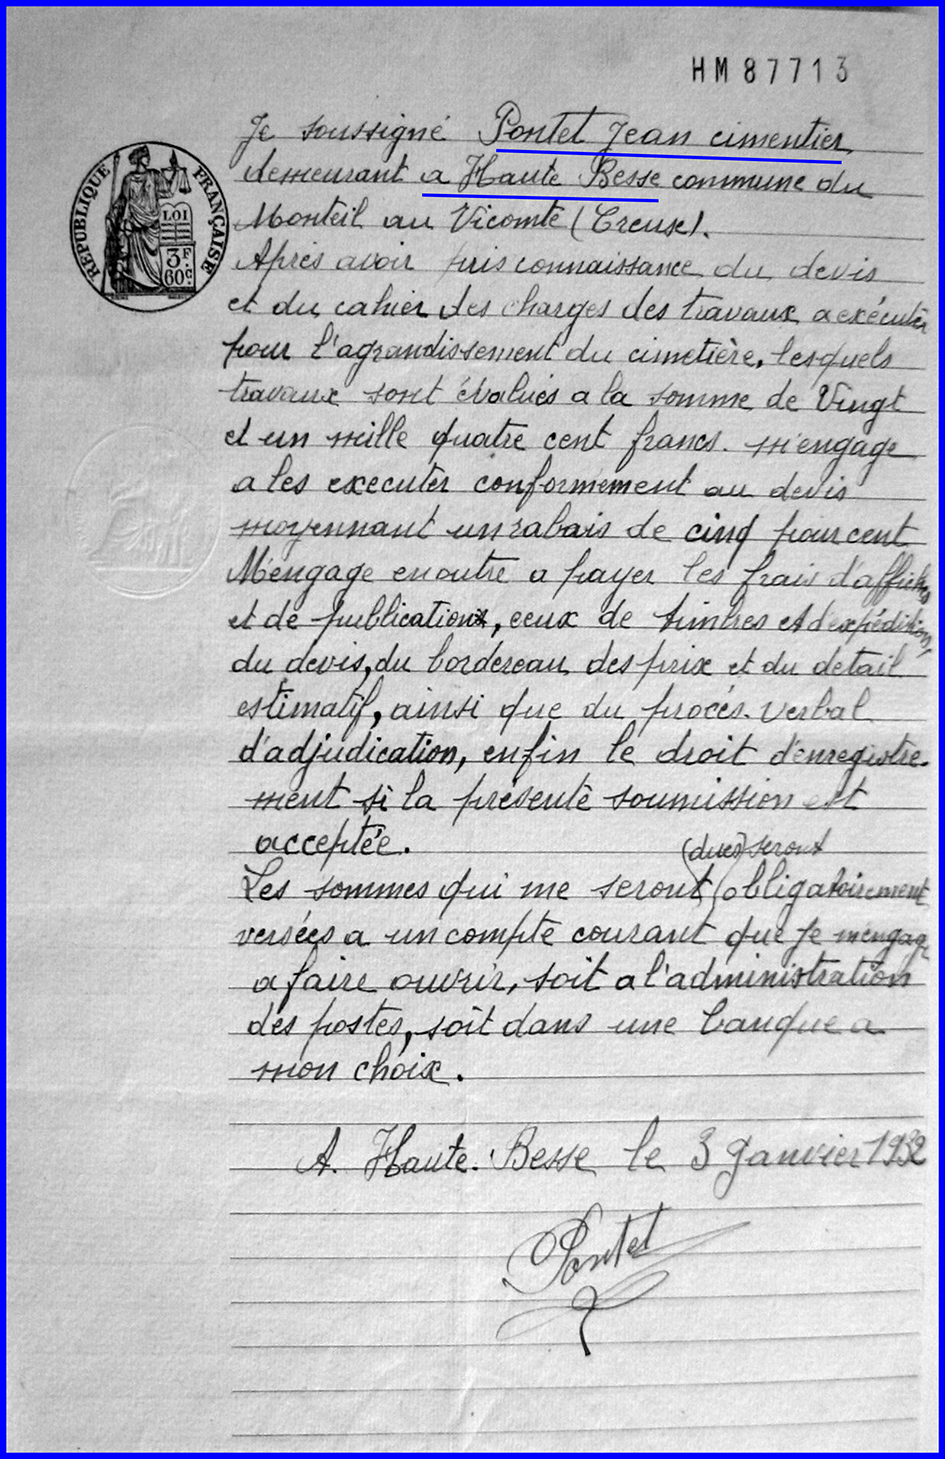 HM87713
RÉPUBLIQUE FRANÇAISE
LOI
3F
60c
Je soussigné Pontet Jean cimentier
demeurant a Haute Besse commune du
Monteil au Vicomte (Creuse).
Après avoir pris connaissance du devis
et du cahier des charges des travaux a exécuter
pour l'agrandissement du cimetière, lesquels
travaux sont évalués a la somme de Vingt
et un mille quatre cent francs. m'engage
a les executer conformément au devis
moyennant un rabais de cinq pour cent
M'engage en outre a payer les frais d'affiches
et de publication, ceux de timbres et d'expédition,
du devis, du bordereau des prix et du detail
estimatif, ainsi que du procès-verbal
d'adjudication, enfin le droit d'enregistre-
ment si la présente soumission est
acceptée.
(dues) seront
Les sommes qui me seront obligatoirement
versées a un compte courant que je m'engage
a faire ouvrir, soit a l'administration
des postes, soit dans une banque a
mon choix.
A. Haute-Besse le 3 Janvier 1932
Pontet